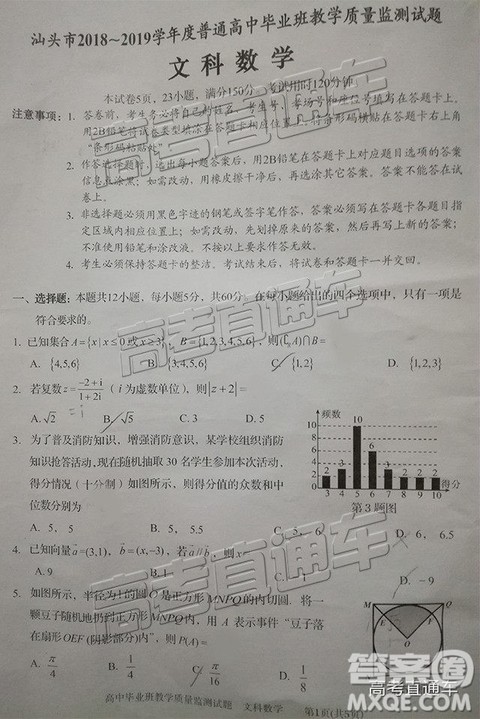 汕头市2018~2019学年度普通高中毕业班教学质量监测试题
文科数学
本试卷5页，23小题，满分150分。考试用时120分钟。
注意事项：1. 答卷前，考生务必将自己的
考场号和座位号填写在答题卡上。
用2B铅笔将试卷类型填涂在答题卡相应位置上。将条形码横贴在答题卡右上角
“条形码粘贴处”
2. 作答选择题时，选出每小题答案后，用2B铅笔在答题卡上对应题目选项的答案
信息点涂黑；如需改动，用橡皮擦干净后，再选涂其它答案。答案不能答在试
卷上。
3. 非选择题必须用黑色字迹的钢笔或签字笔作答，答案必须写在答题卡各题目指定
区域内相应位置上；如需改动，先划掉原来的答案，然后再写上新的答案；
不准使用铅笔和涂改液。不按以上要求作答无效。
4. 考生必须保持答题卡的整洁。考试结束后，将试卷和答题卡一并交回。
一、选择题：本题共12小题，每小题5分，共60分。在每小题给出的四个选项中，只有一项是
符合要求的。
1. 已知集合A={x|x≤0或x≥3}，B={1,2,3,4,5,6}，则(∁ᵣA)∩B=
A. {4,5,6} B. {3,4,5,6} C. {1,2} D. {1,2,3}
2. 若复数z=(-2+i)/(1+2i)（i为虚数单位），则|z+2|=
=i
A. √2 B. √5
3. 为了普及消防知识，增强消防意识，某学校组织消防
知识抢答活动，现在随机抽取30名学生参加本次活动，
得分情况（十分制）如图所示，则得分值的众数和中
位数分别为
频数
10
8
6
4
2
2 3 10 6 3 2 2 2
3 4 5 6 7 8 9 10
得分
第3题图
A. 5，5 B. 5， D. 6，6.5
4. 已知向量a=(3,1)，b=(x,-3)，若a//b，则x=
A. 9 B. 1 D. -9
5. 如图所示，半径为1的圆O是正方形MNPQ的内切圆，将一
颗豆子随机地扔到正方形MNPQ内，用A表示事件“豆子落
在扇形OEF(阴影部分)内”，则P(A)=
M Q
E F
O
A. π/4 B. 1/4 C. π/16 D. 1/8
高中毕业班教学质量监测试题 文科数学 第1页(共5页)
高考直通车
高考直通车
高考直通车
高考直通车
答案圈